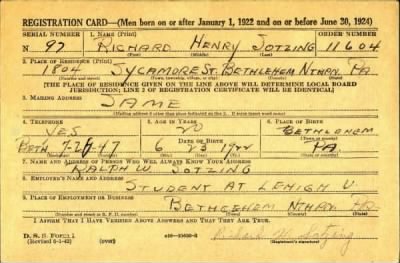 REGISTRATION CARD—(Men born on or after January 1, 1922 and on or before June 30, 1924)
SERIAL NUMBER 1. NAME (Print) ORDER NUMBER
N 97 RICHARD HENRY JOTZING 11604
2. PLACE OF RESIDENCE (Print)
1804 SYCAMORE ST. BETHLEHEM NTHAN. PA.
[THE PLACE OF RESIDENCE GIVEN ON THE LINE ABOVE WILL DETERMINE LOCAL BOARD
JURISDICTION; LINE 2 OF REGISTRATION CERTIFICATE WILL BE IDENTICAL]
3. MAILING ADDRESS
SAME
4. TELEPHONE 5. AGE IN YEARS 6. PLACE OF BIRTH
YES 20 BETHLEHEM
BETH. 7-2747 6 23 1922 PA.
7. NAME AND ADDRESS OF PERSON WHO WILL ALWAYS KNOW YOUR ADDRESS
RALPH W. JOTZING
8. EMPLOYER'S NAME AND ADDRESS
STUDENT AT LEHIGH U
9. PLACE OF EMPLOYMENT OR BUSINESS
BETHLEHEM NTHAN. PA.
I AFFIRM THAT I HAVE VERIFIED ABOVE ANSWERS AND THAT THEY ARE TRUE.
D. S. S. Form 1
(Revised 6-9-42) (over)
(Registrant's signature)